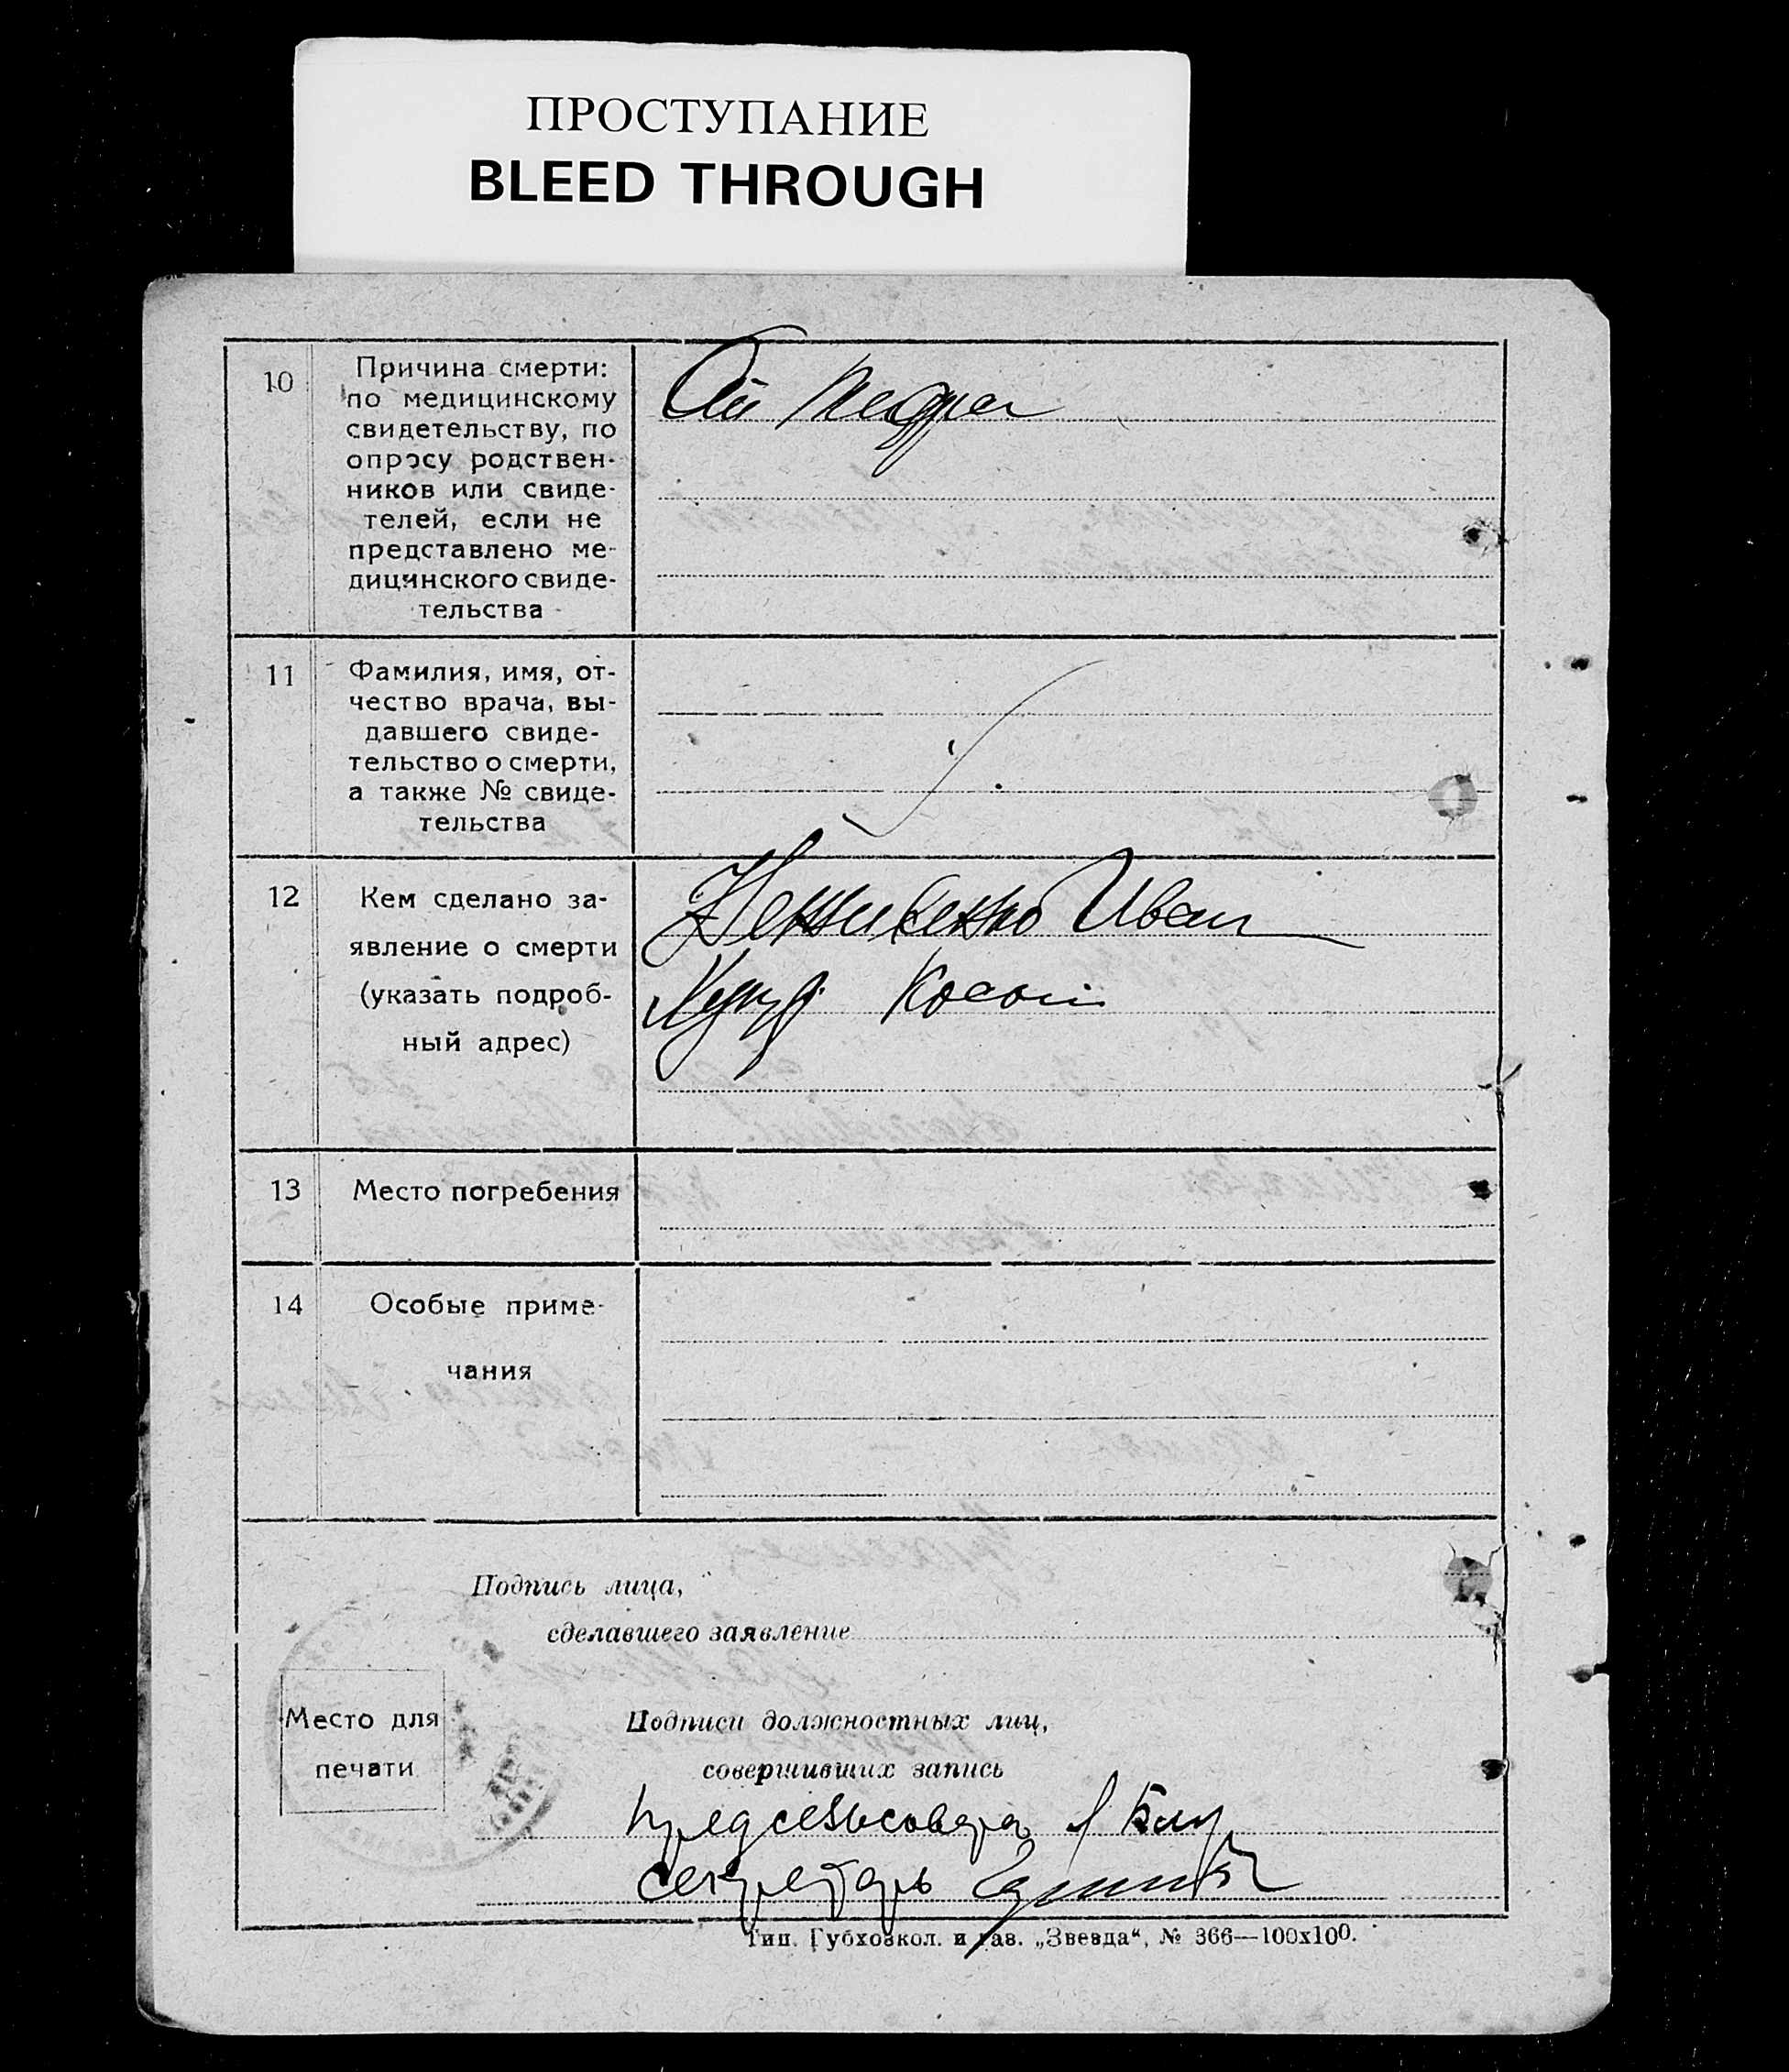 ПРОСТУПАНИЕ
BLEED THROUGH
10
Причина смерти:
по медицинскому
свидетельству, по
опросу родствен-
ников или свиде-
телей, если не
представлено ме-
дицинского свиде-
тельства
11
Фамилия, имя, от-
чество врача, вы-
давшего свиде-
тельство о смерти,
а также № свиде-
тельства
12
Кем сделано за-
явление о смерти
(указать подроб-
ный адрес)
Иван
Хутор Косой
13
Место погребения
14
Особые приме-
чания
Подпись лица,
сделавшего заявление
Место для
печати
Подписи должностных лиц,
совершивших запись
Предсельсовета
Секретарь
Тип. Губхозкол. и газ. „Звезда“, № 366—100х100.